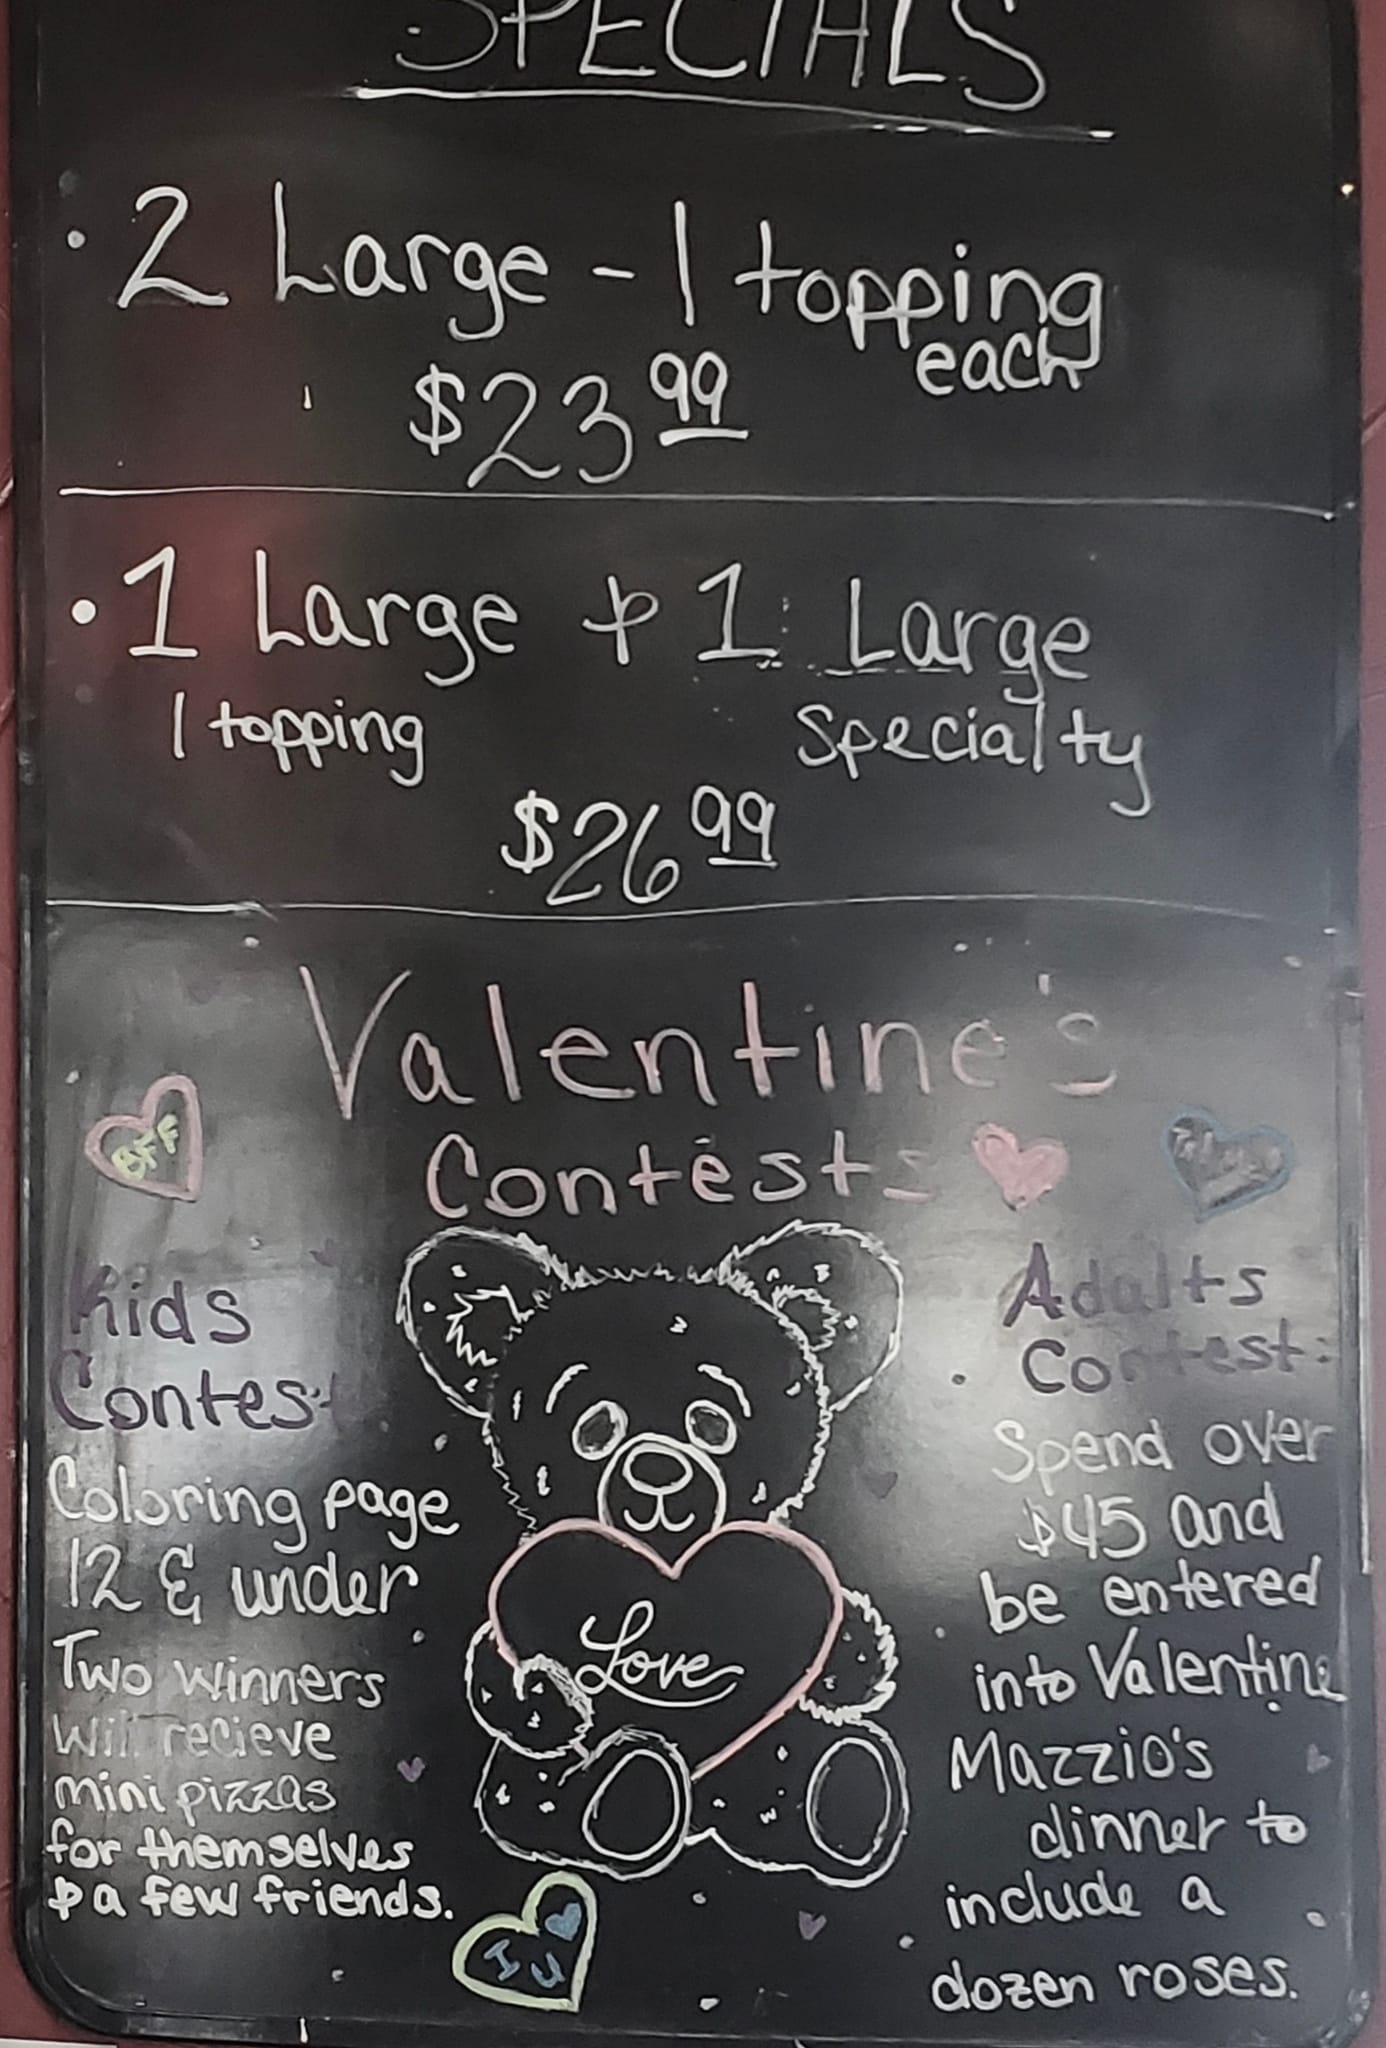 SPECIALS
· 2 Large - 1 topping
each
$23 99
· 1 Large & 1 Large
1 topping Specialty
$26 99
Valentine's
Contests
BFF
Kids
Contest
Coloring page
12 & under
Two winners
will recieve
mini pizzas
for themselves
& a few friends.
Love
I U
Adults
Contest:
Spend over
$45 and
be entered
into Valentine
Mazzio's
dinner to
include a
dozen roses.